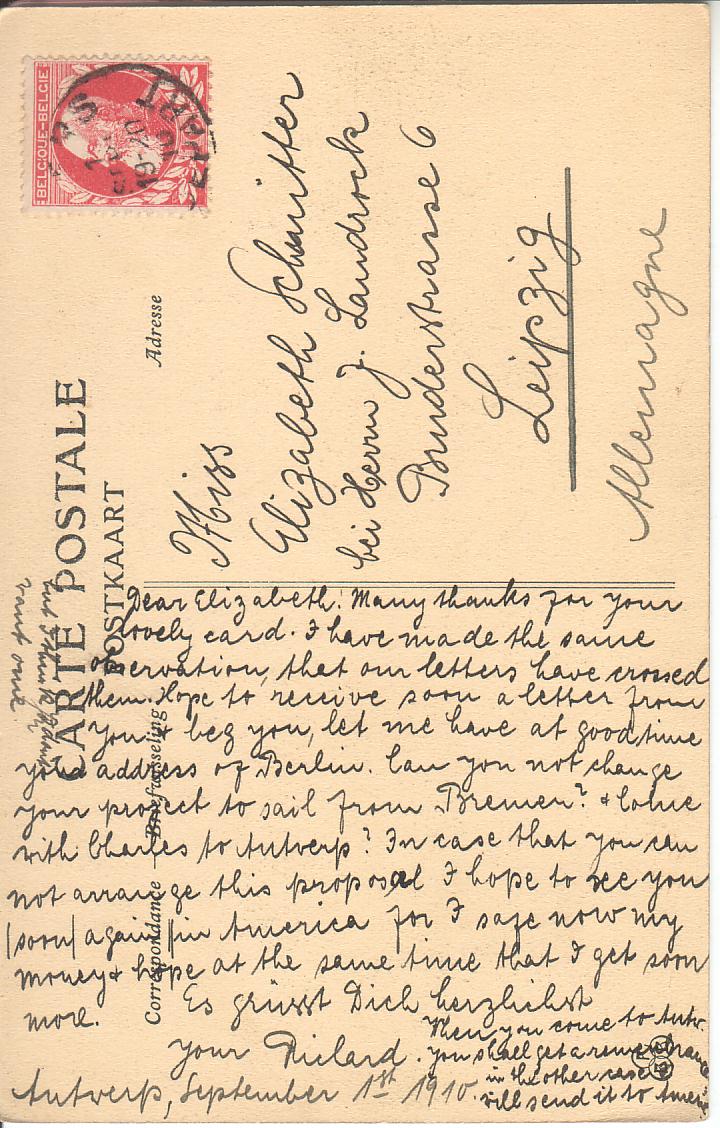 BELGIQUE-BELGIE
1 SEPT
19-20
1910
CARTE POSTALE
POSTKAART
Adresse
Miss
Elizabeth Schnitter
bei Herrn J. Landrock
Brüderstrasse 6
Leipzig
Allemagne
Correspondance — Briefwisseling
Dear Elizabeth! Many thanks for your
lovely card. I have made the same
observation, that our letters have crossed
them. Hope to receive soon a letter from
you & beg you, let me have at good time
your address of Berlin. Can you not change
your project to sail from Bremen? & come
with Charles to Antwerp? In case that you can
not arrange this proposal I hope to see you
(soon) again in America for I safe now my
money & hope at the same time that I get soon
more.
Es grüsst Dich herzlichst
your Richard.
Antwerp, September 1st 1910.
When you come to Antw.
you shall get a remembrance
in the other case I
will send it to America
but I think
want one.